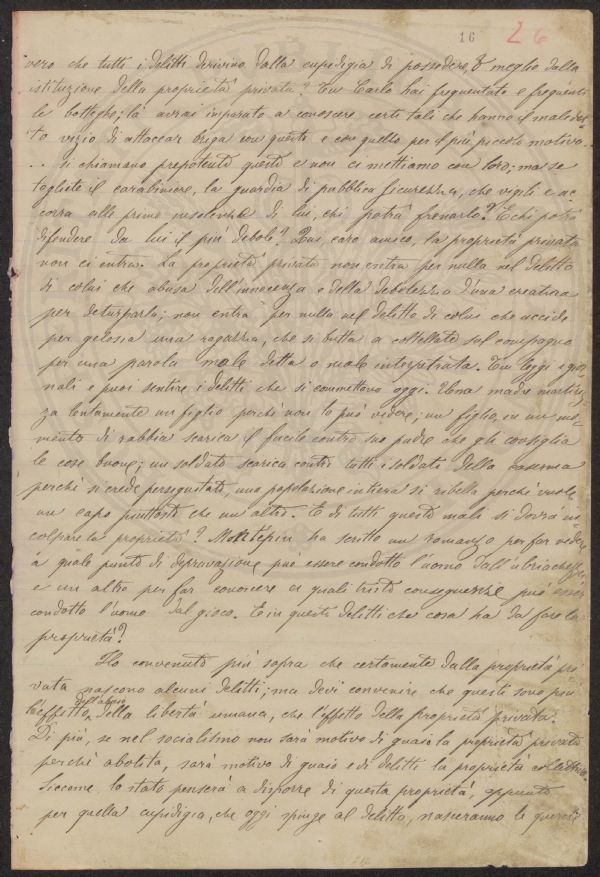 16 26
vero che tutti i delitti derivino dalla cupidigia di possedere, o meglio dalla
istituzione della proprietà privata? Tu Carlo hai frequentato e frequenti
le botteghe; là avrai imparato a conoscere certi tali che hanno il maledet
to vizio di attaccar briga con questo e con quello per il più piccolo motivo..
.. si chiamano prepotenti questi e non ci mettiamo con loro; ma se
togliete il carabiniere, la guardia di pubblica sicurezza, che vigili e ac
corra alle prime insolenze di lui, chi potrà frenarlo? E chi potrà
difendere da lui il più debole? Qui, caro amico, la proprietà privata
non ci entra. La proprietà privata non entra per nulla nel delitto
di colui che abusa dell'innocenza e della debolezza d'una creatura
per deturparla; non entra per nulla nel delitto di colui che uccide
per gelosia una ragazza, che si butta a coltellate sul compagno
per una parola male detta o male interpretata. Tu leggi i gior
nali e puoi sentire i delitti che si commettono oggi. Una madre martiriz
za lentamente un figlio perchè non lo può vedere; un figlio, in un mo
mento di rabbia scarica il fucile contro suo padre che gli consiglia
le cose buone; un soldato scarica contro tutti i soldati della caserma
perchè si crede perseguitato, una popolazione intiera si ribella perchè vuole
un capo piuttosto che un altro. E di tutti questi mali si dovrà in
colpare la proprietà? Montépin ha scritto un romanzo per far vedere
a quale punto di depravazione può essere condotto l'uomo dall'ubriachezza
e un altro per far conoscere a quali tristi conseguenze può esser
condotto l'uomo dal gioco. E in questi delitti che cosa ha da fare la
proprietà?
Ho convenuto più sopra che certamente dalla proprietà pri
vata nascono alcuni delitti; ma devi convenire che questi sono più
l'effetto dell'abuso della libertà umana, che l'effetto della proprietà privata.
Di più, se nel socialismo non sarà motivo di guaio la proprietà privata
perchè abolita, sarà motivo di guaio e di delitti la proprietà collettiva.
Siccome lo stato penserà a disporre di questa proprietà, appunto
per quella cupidigia, che oggi spinge al delitto, nasceranno le